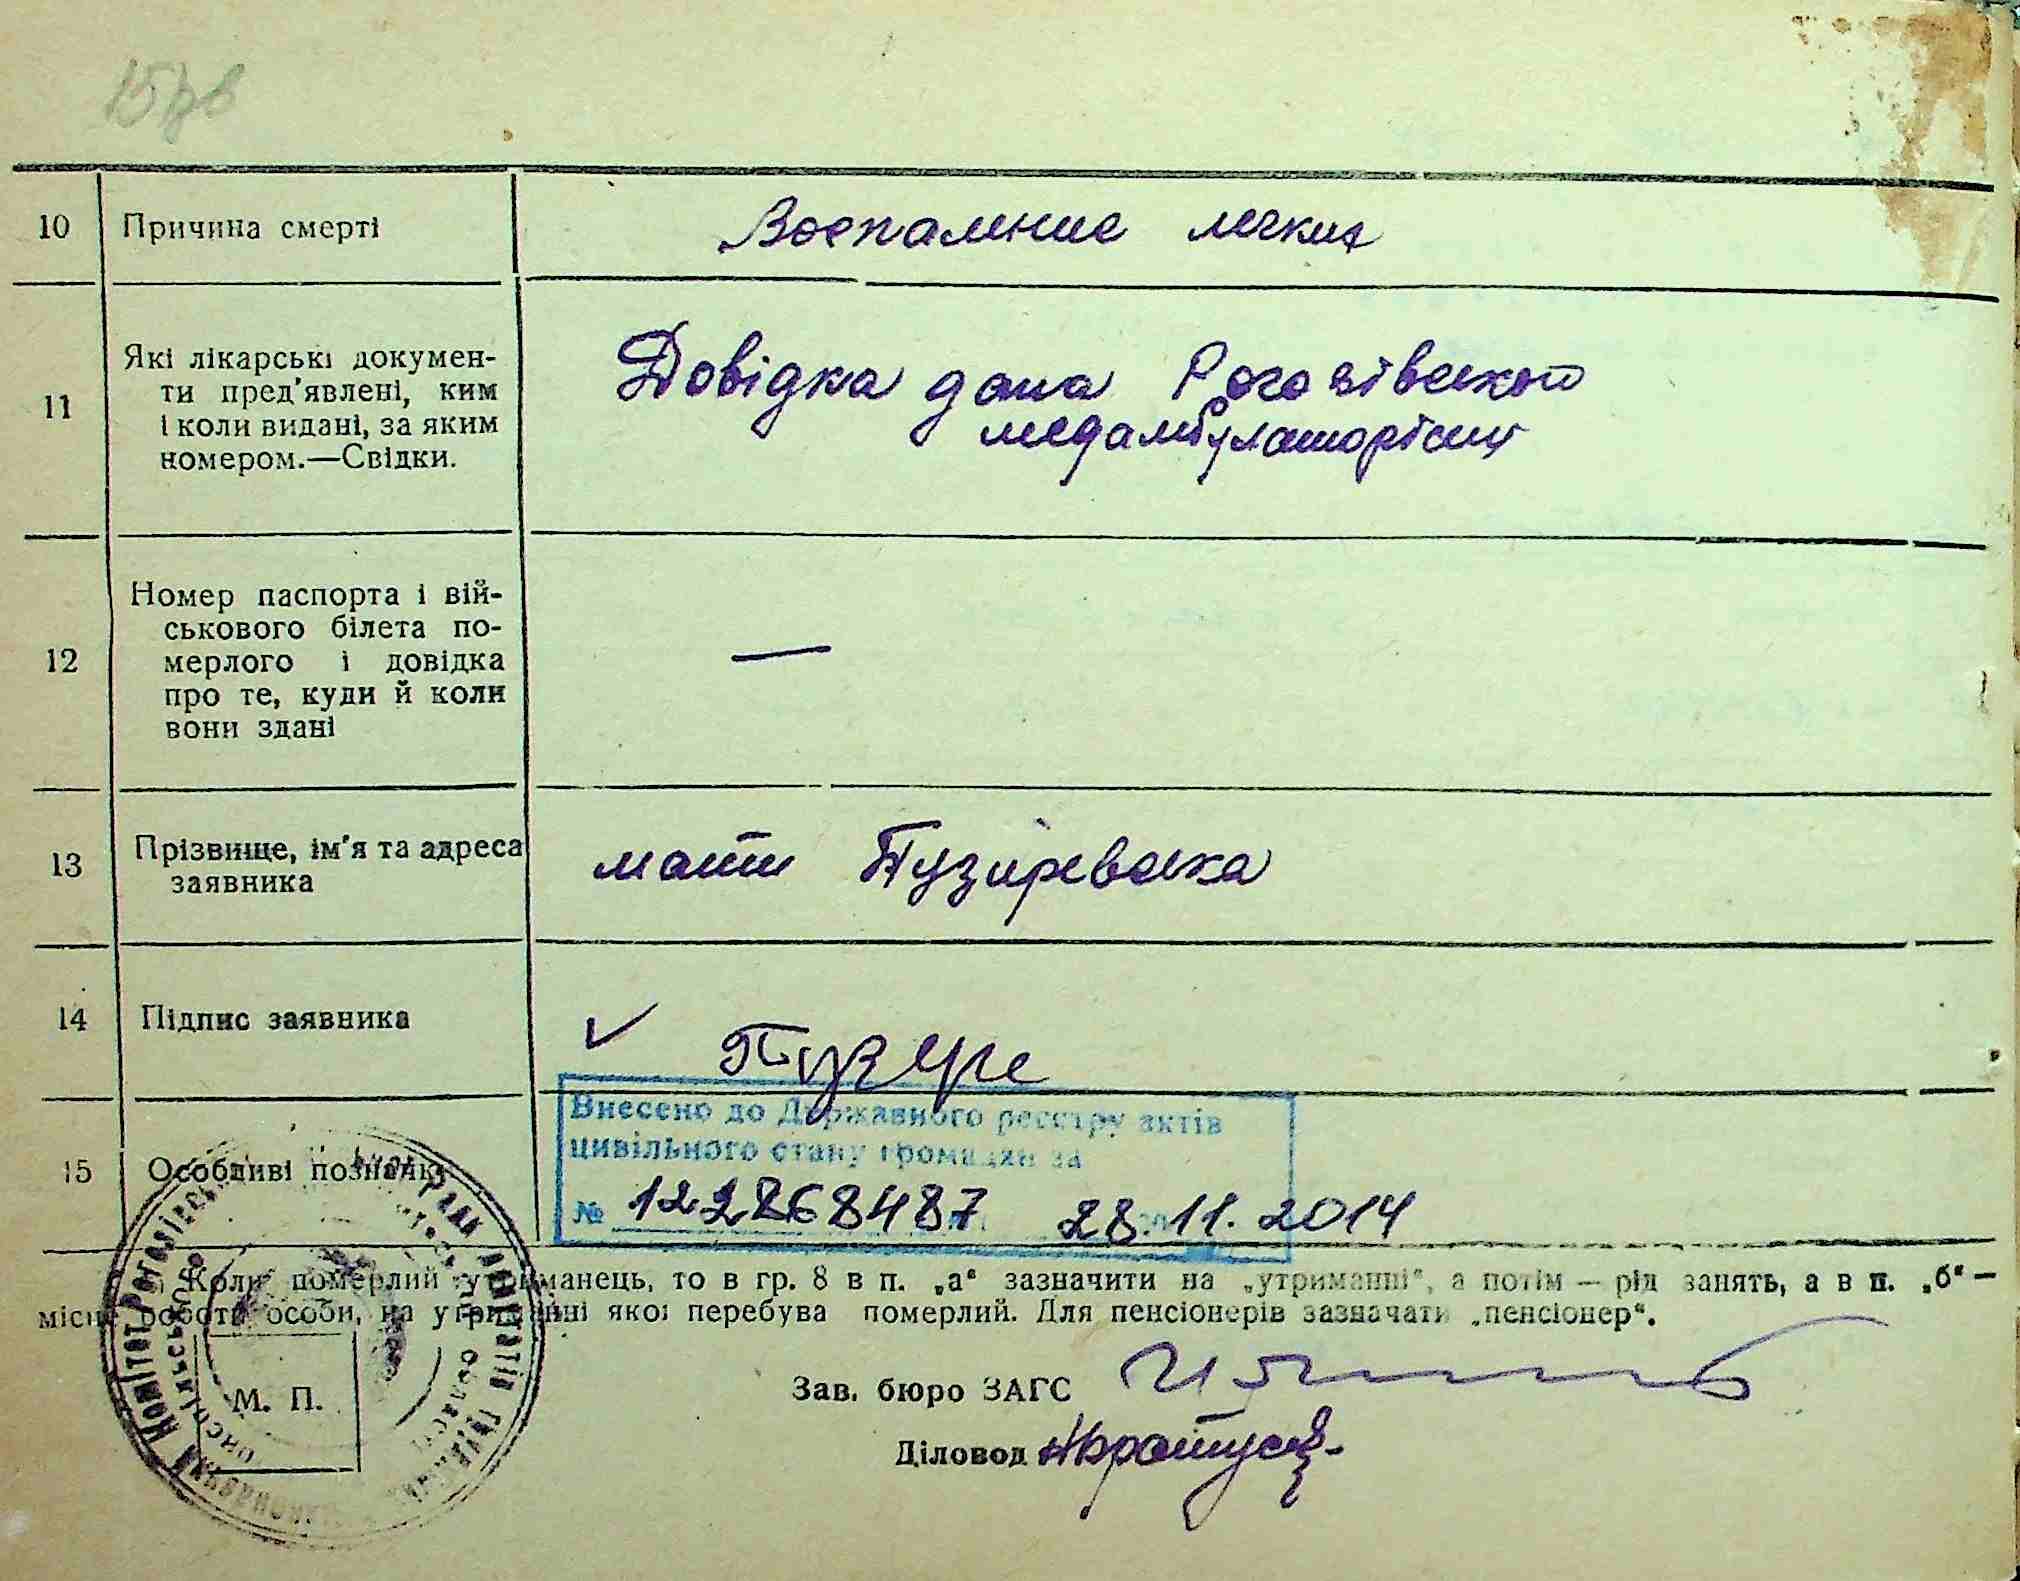 10 Причина смерті Воспаление легких
11 Які лікарські докумен-
ти пред'явлені, ким
і коли видані, за яким
номером.—Свідки.
Довідка дана Рогозівською
медамбулаторією
12 Номер паспорта і вій-
ськового білета по-
мерлого і довідка
про те, куди й коли
вони здані
—
13 Прізвище, ім'я та адреса
заявника
мати Пузиревська
14 Підпис заявника
15 Особливі позначки
Внесено до Державного реєстру актів
цивільного стану громадян за
№ 12 2868487 28.11.2014
Коли померлий утриманець, то в гр. 8 в п. „а“ зазначити на „утриманні“, а потім — рід занять, а в п. „б“ —
місце роботи особи, на утриманні якої перебував померлий. Для пенсіонерів зазначати „пенсіонер“.
М. П.
Зав. бюро ЗАГС
Діловод